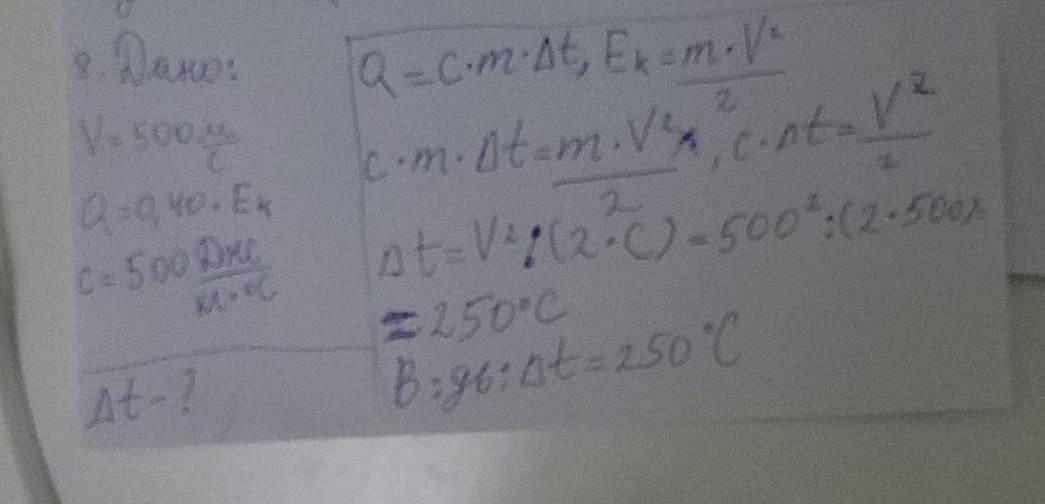 8. Дано:
V = 500 м/с
Q = 0,40 · Eк
c = 500 Дж/м·°C
Δt - ?
Q = c · m · Δt, Eк = m · V² / 2
c · m · Δt = m · V² / 2, c · Δt = V² / 2
Δt = V² : (2 · C) = 500² : (2 · 500) =
= 250°C
В:дв: Δt = 250°C